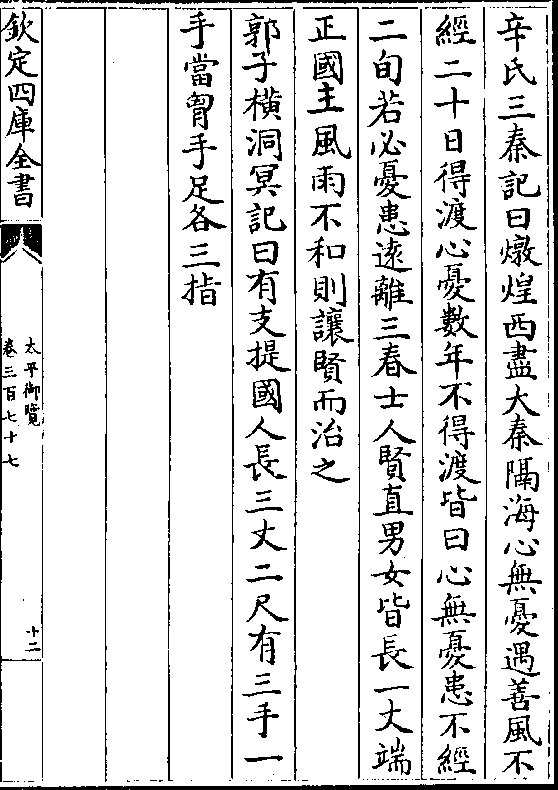 辛氏三秦記曰燉煌西盡大秦隔海心無憂遇善風不
經二十日得渡心憂數年不得渡皆曰心無憂患不經
二旬若必憂患遠離三春士人賢直男女皆長一丈端
正國主風雨不和則讓賢而治之
郭子横洞冥記曰有支提國人長三丈二尺有三手一
手當胷手足各三指
欽定四庫全書
太平御覽
卷三百七十七
十二